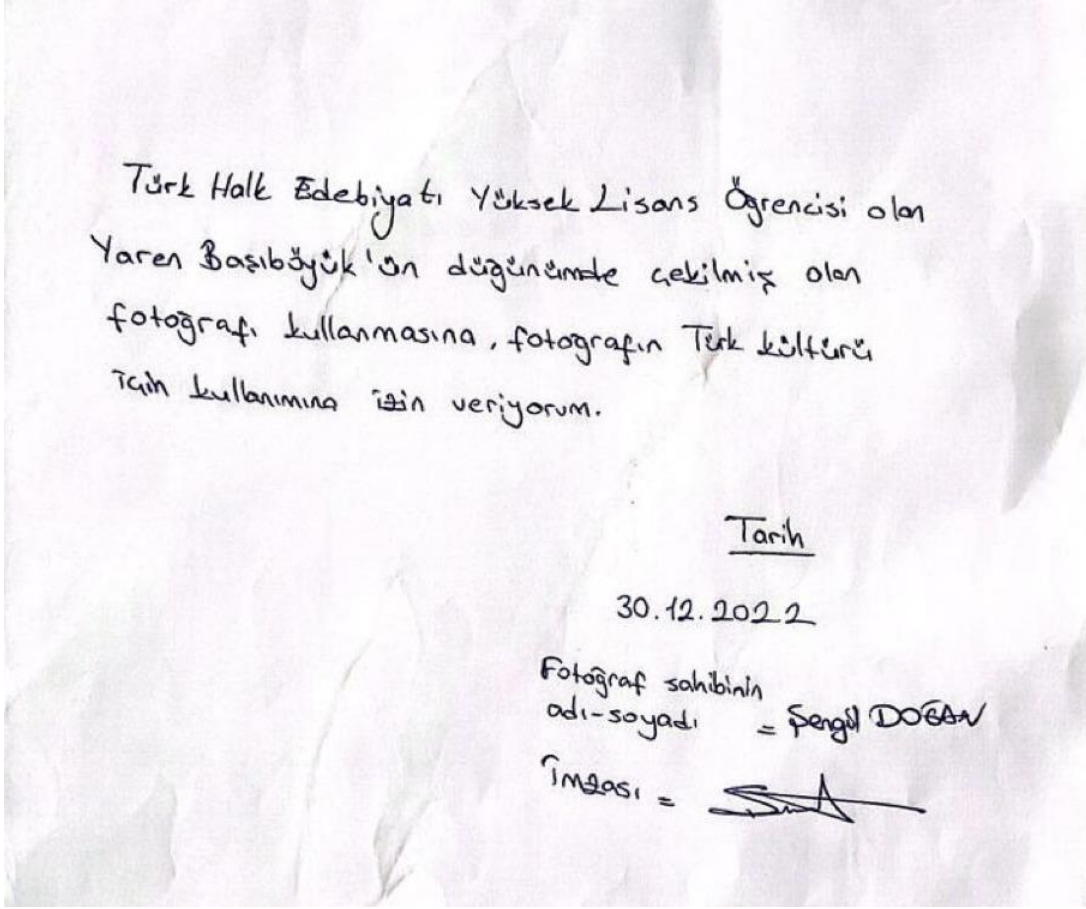 Türk Halk Edebiyatı Yüksek Lisans Öğrencisi olan
Yaren Başıböyük'ün düğünümde çekilmiş olan
fotoğrafı kullanmasına, fotoğrafın Türk kültürü
için kullanımına izin veriyorum.
Tarih
30.12.2022
Fotoğraf sahibinin
adı-soyadı = Şengül DOĞAN
İmzası =